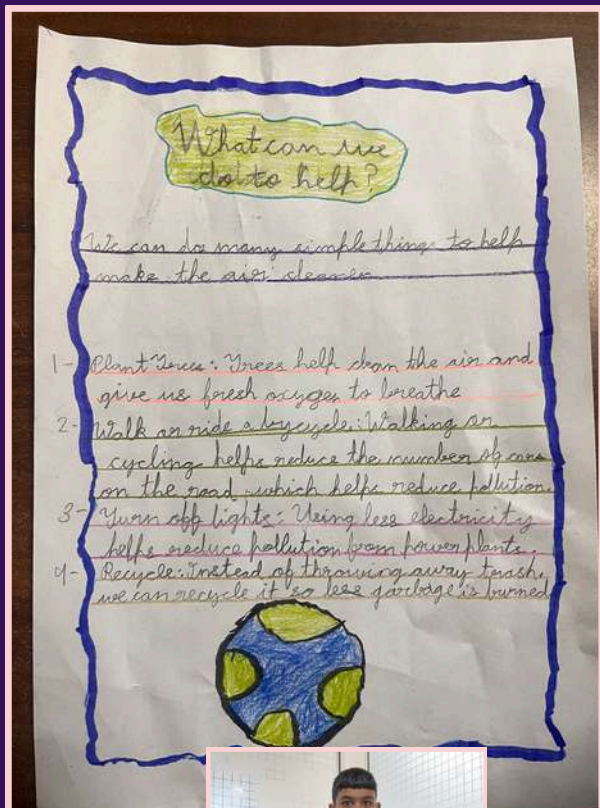 What can we
do to help?
We can do many simple things to help
make the air cleaner
1- Plant Trees: Trees help clean the air and
give us fresh oxygen to breathe
2- Walk or ride a bycycle: Walking or
cycling helps reduce the number of cars
on the road which helps reduce pollution.
3- Turn off lights: Using less electricity
helps reduce pollution from power plants.
4- Recycle: Instead of throwing away trash,
we can recycle it so less garbage is burned